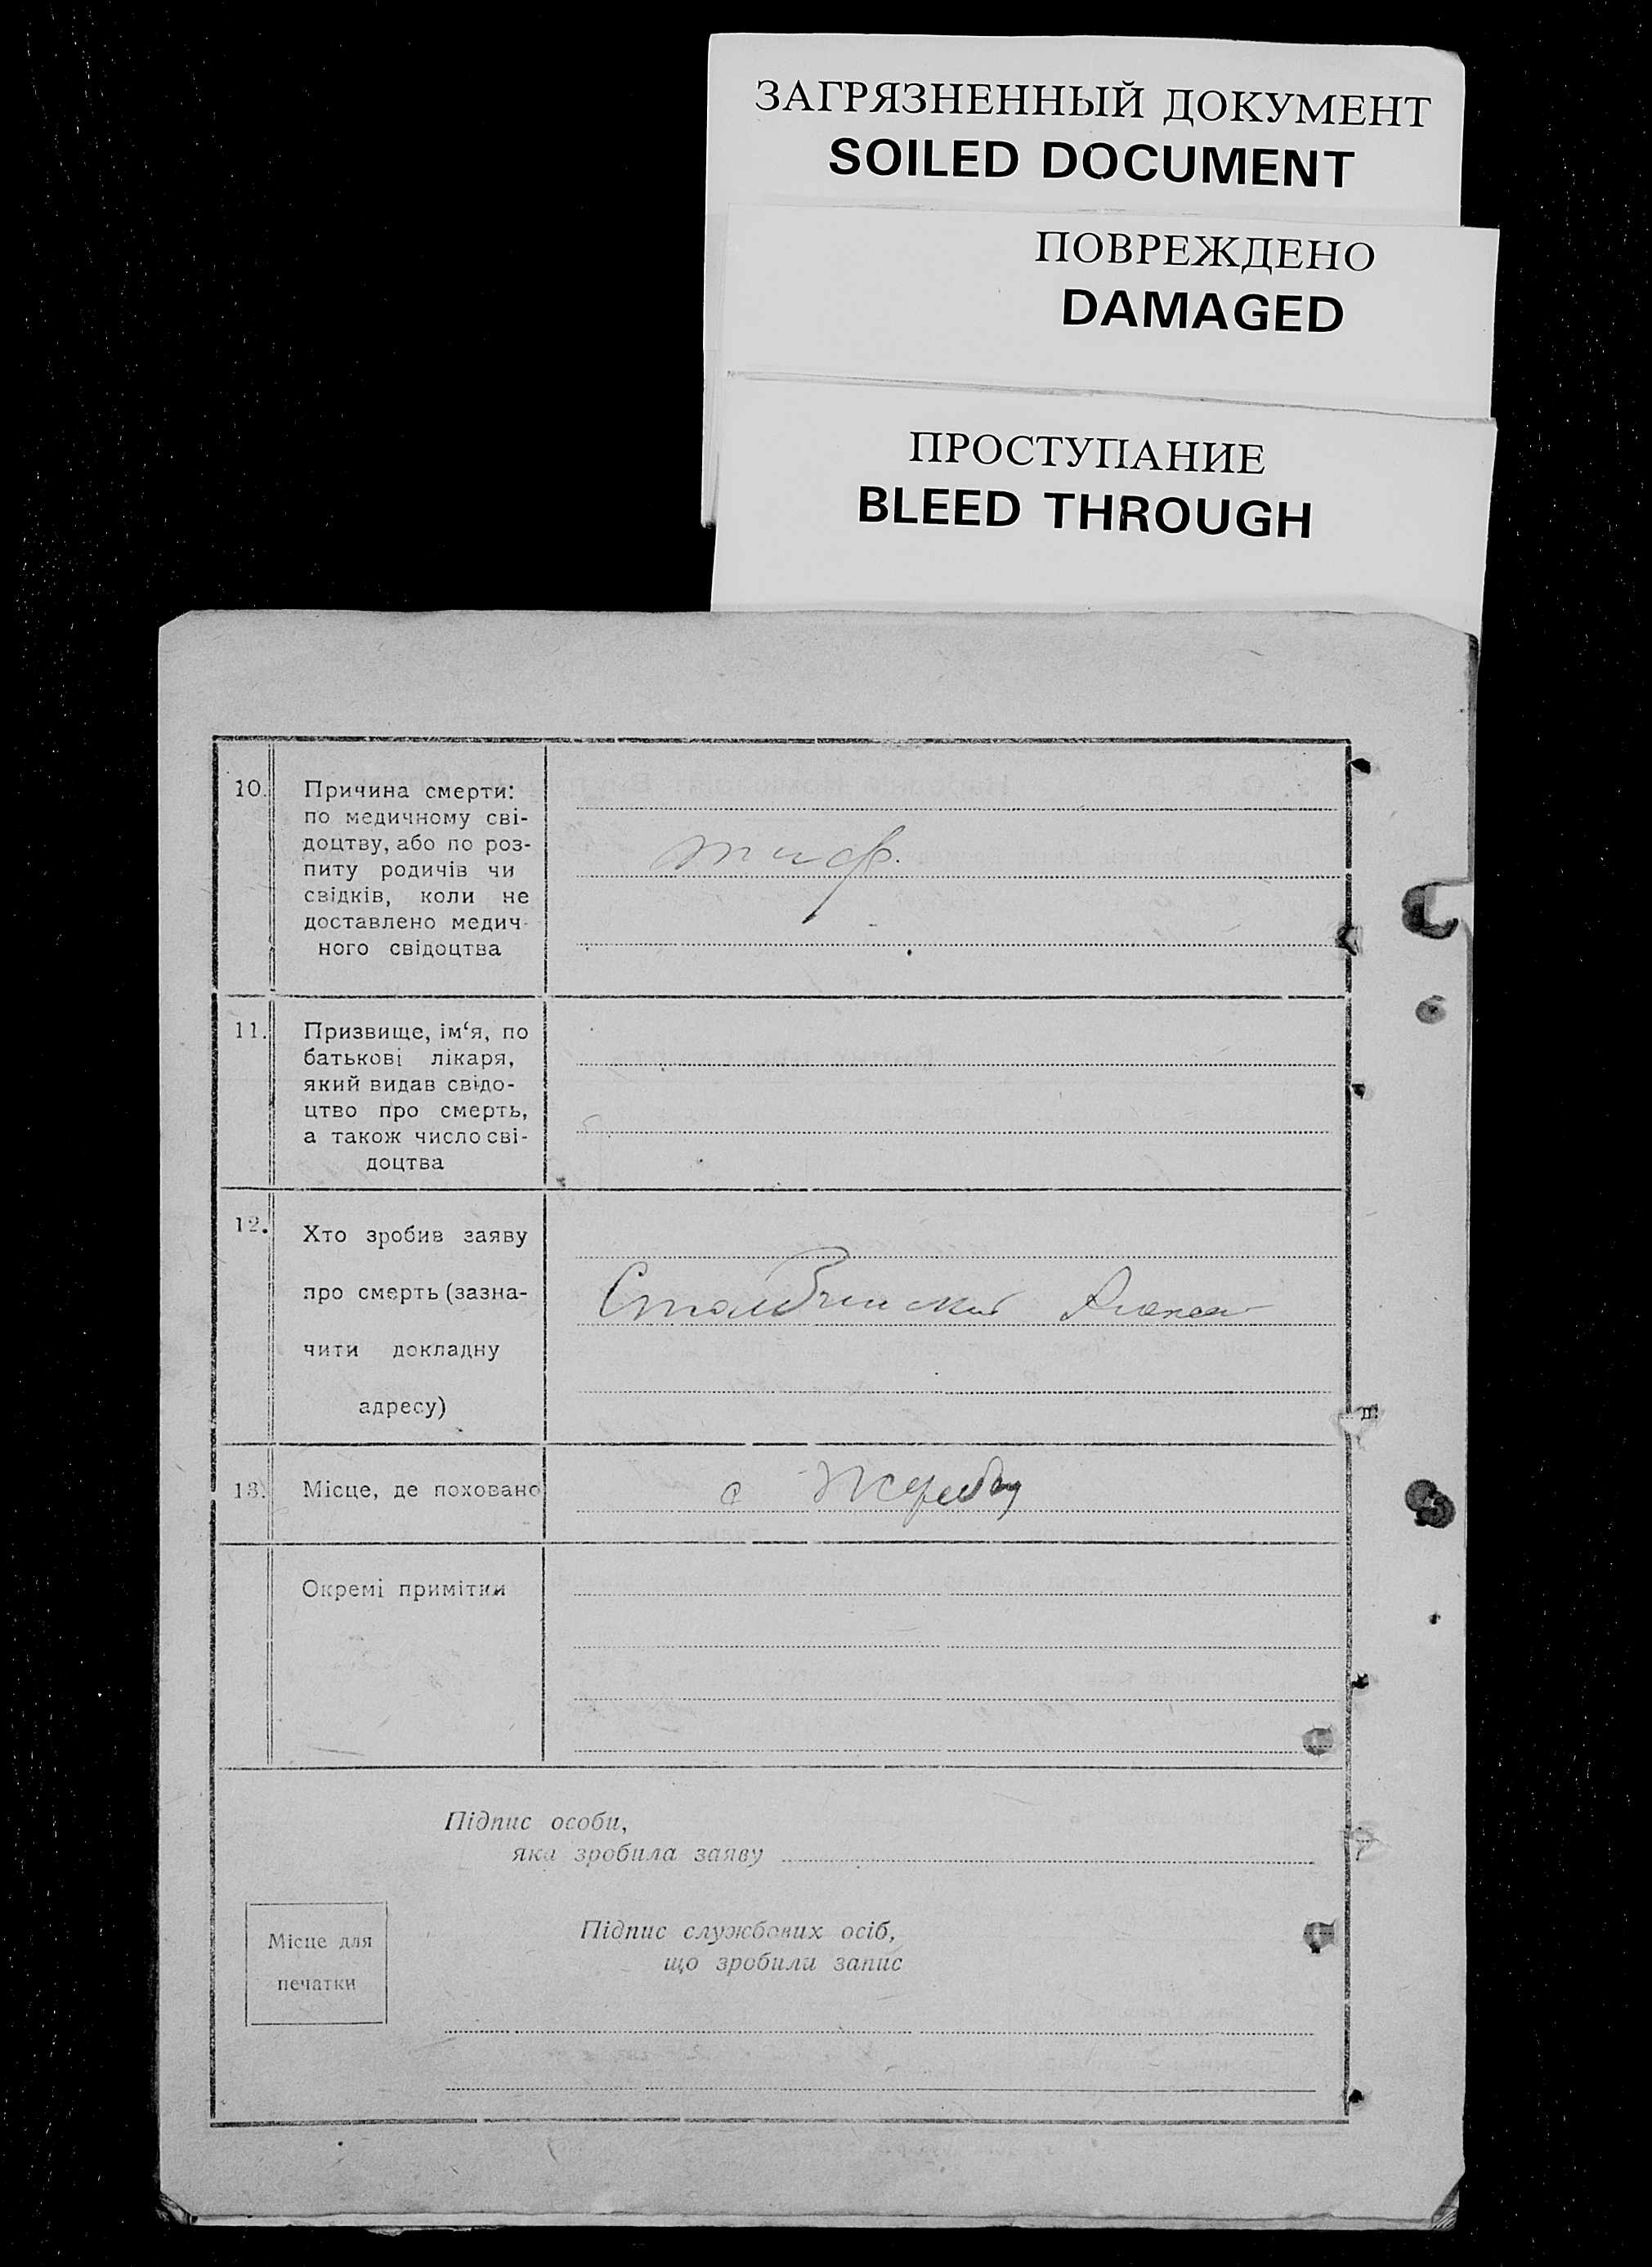 ЗАГРЯЗНЕННЫЙ ДОКУМЕНТ
SOILED DOCUMENT
ПОВРЕЖДЕНО
DAMAGED
ПРОСТУПАНИЕ
BLEED THROUGH
10. Причина смерти:
по медичному сві-
доцтву, або по роз-
питу родичів чи
свідків, коли не
доставлено медич-
ного свідоцтва
тиф.
11. Призвище, ім‘я, по
батькові лікаря,
який видав свідо-
цтво про смерть,
а також число сві-
доцтва
12. Хто зробив заяву
про смерть (зазна-
чити докладну
адресу)
13. Місце, де поховано
с
Окремі примітки
Підпис особи,
яка зробила заяву
Місце для
печатки
Підпис службових осіб,
що зробили запис